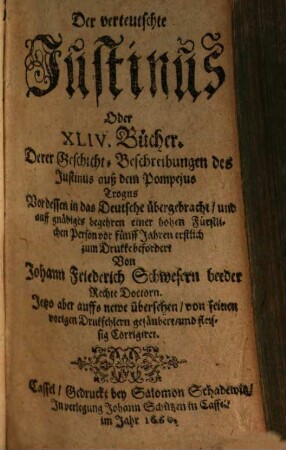 Der verteutschte
Justinus
Oder
XLIV. Bücher.
Derer Geschicht-Beschreibungen des
Justinus auß dem Pompejus
Trogus
Vordessen in das Deutsche übergebracht/ und
auff gnädiges begehren einer hohen Fürstli-
chen Person vor fünff Jahren erstlich
zum Drukke befördert
Von
Johann Friederich Schwesern beeder
Rechte Doctorn.
Jetzo aber auffs newe übersehen/ von seinen
vorigen Drukfehlern gesäubert/ und fleis-
sig Corrigiret.
Cassel/ Gedruckt bey Salomon Schadewitz/
In verlegung Johann Schützen in Cassel/
im Jahr